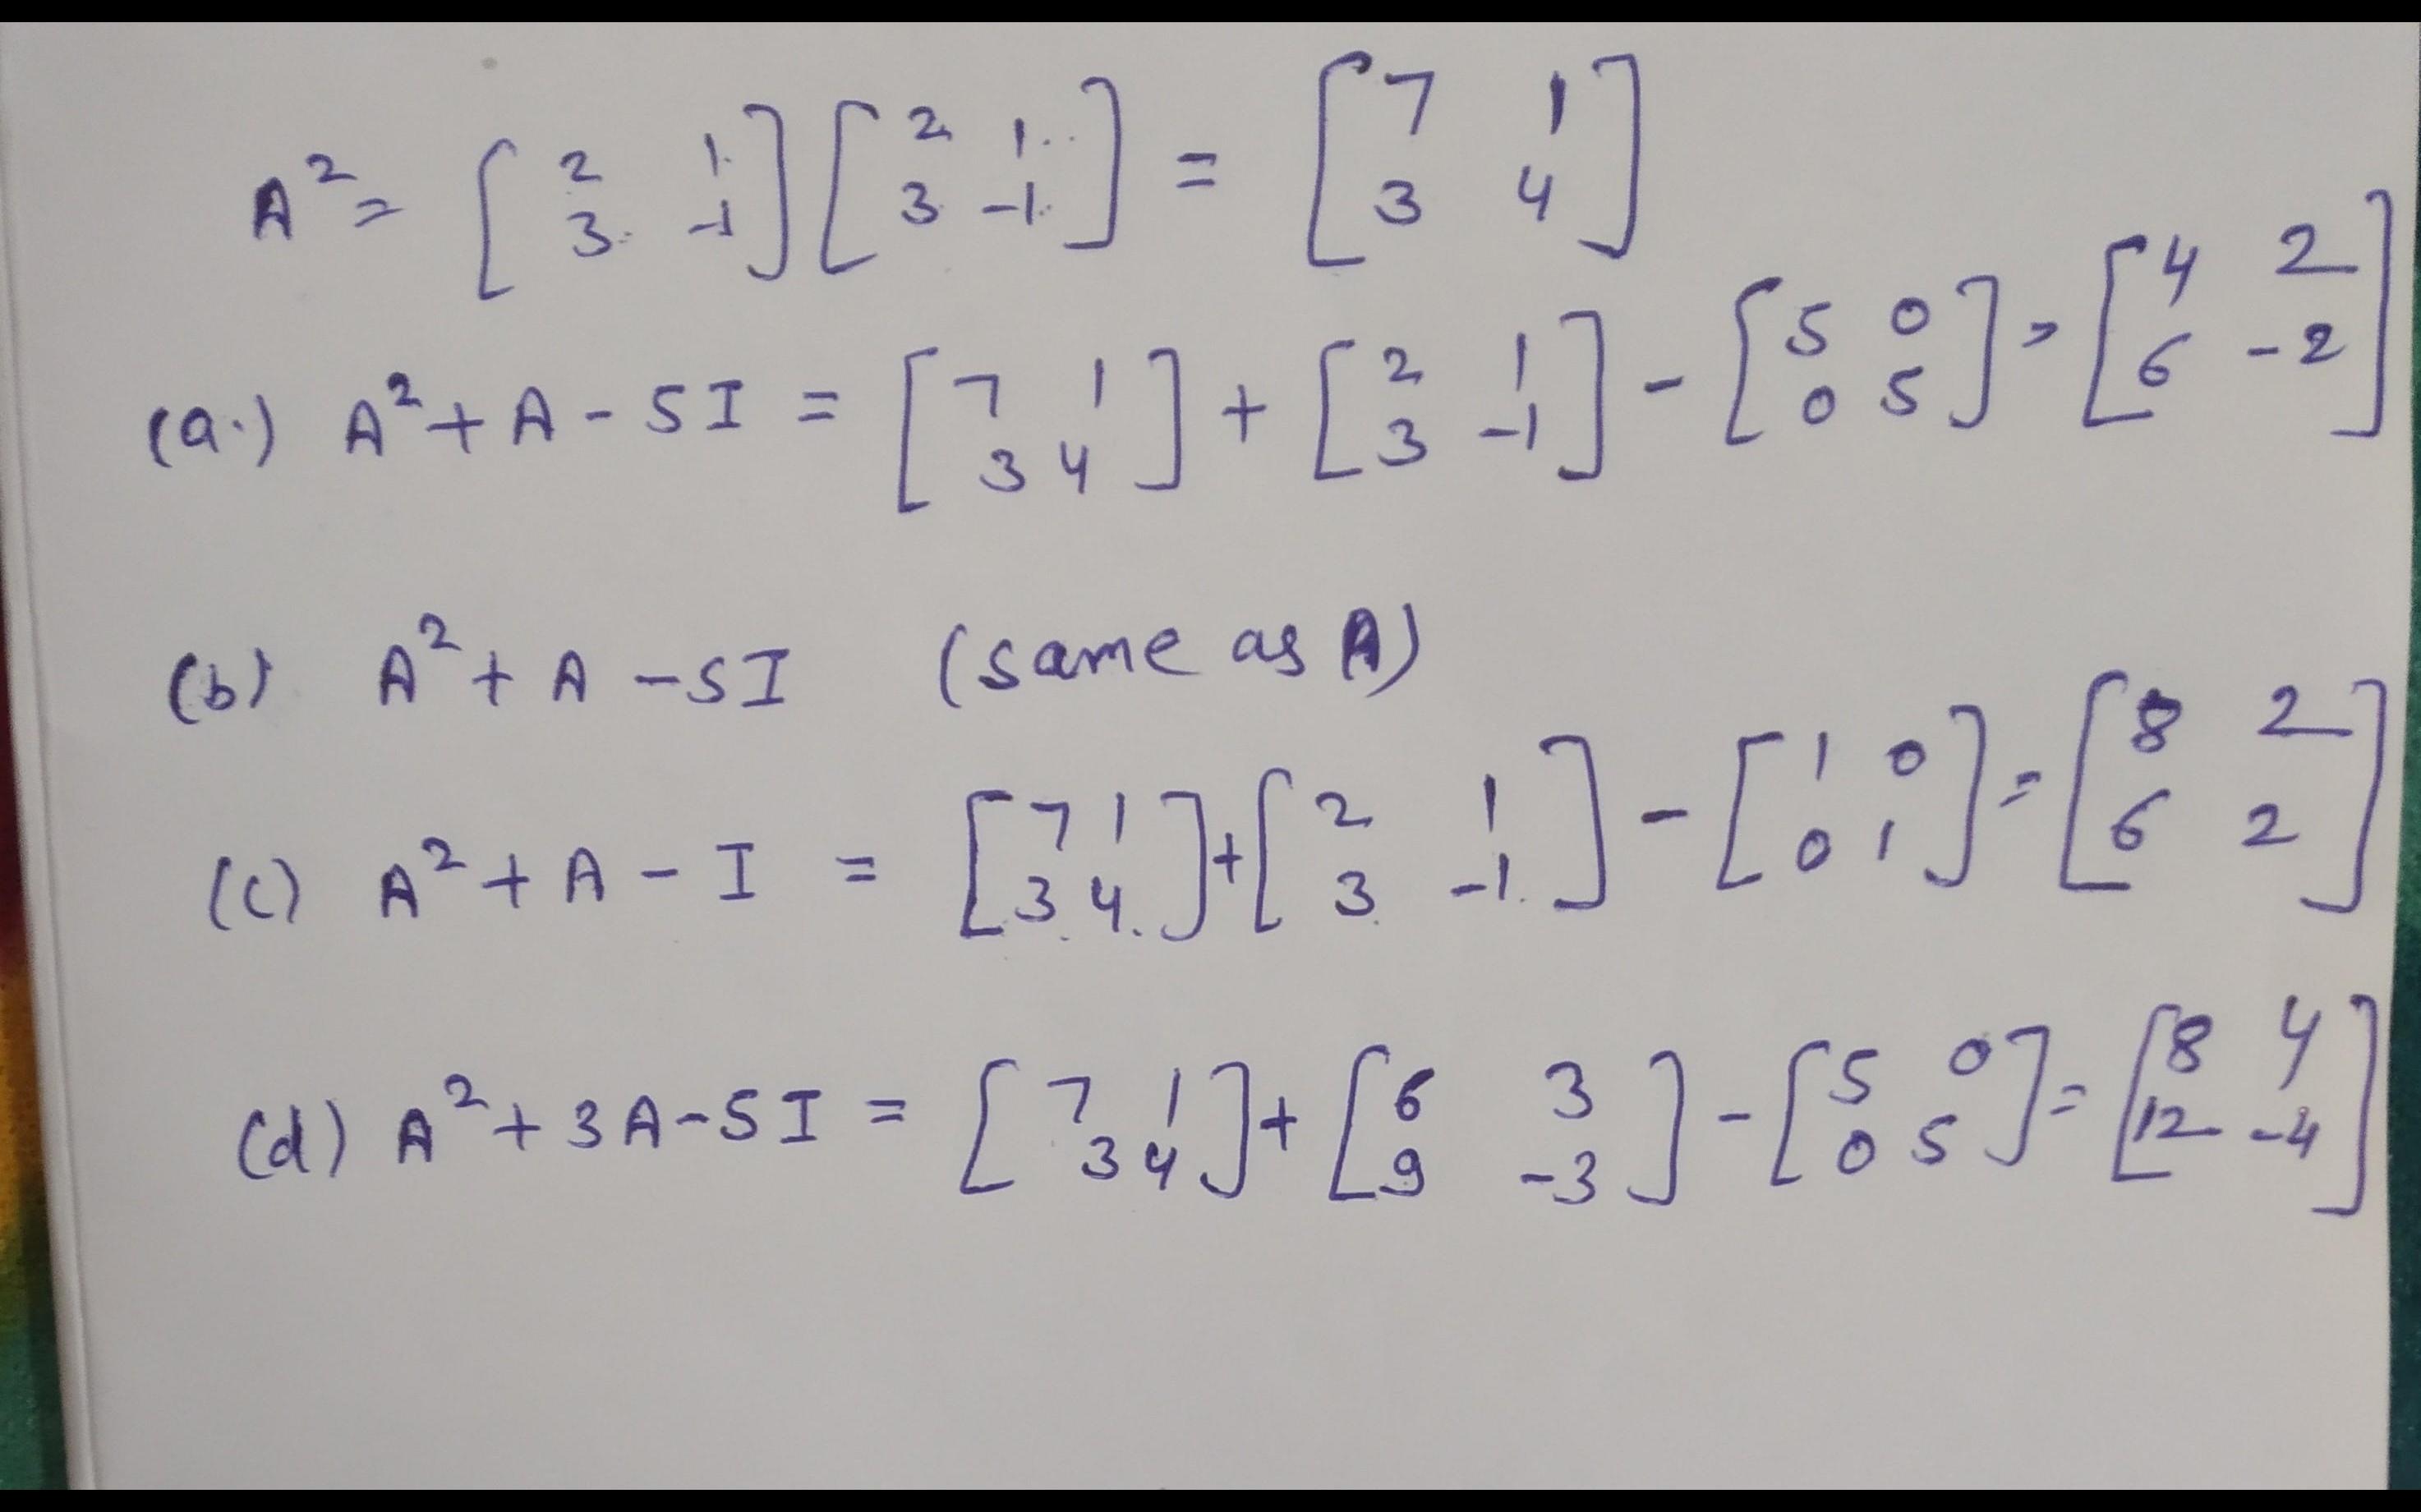 A² = [2 1; 3 -1] [2 1; 3 -1] = [7 1; 3 4]
(a.) A² + A - 5I = [7 1; 3 4] + [2 1; 3 -1] - [5 0; 0 5] = [4 2; 6 -2]
(b) A² + A - 5I (same as A)
(c) A² + A - I = [7 1; 3 4] + [2 1; 3 -1] - [1 0; 0 1] = [8 2; 6 2]
(d) A² + 3A - 5I = [7 1; 3 4] + [6 3; 9 -3] - [5 0; 0 5] = [8 4; 12 -4]